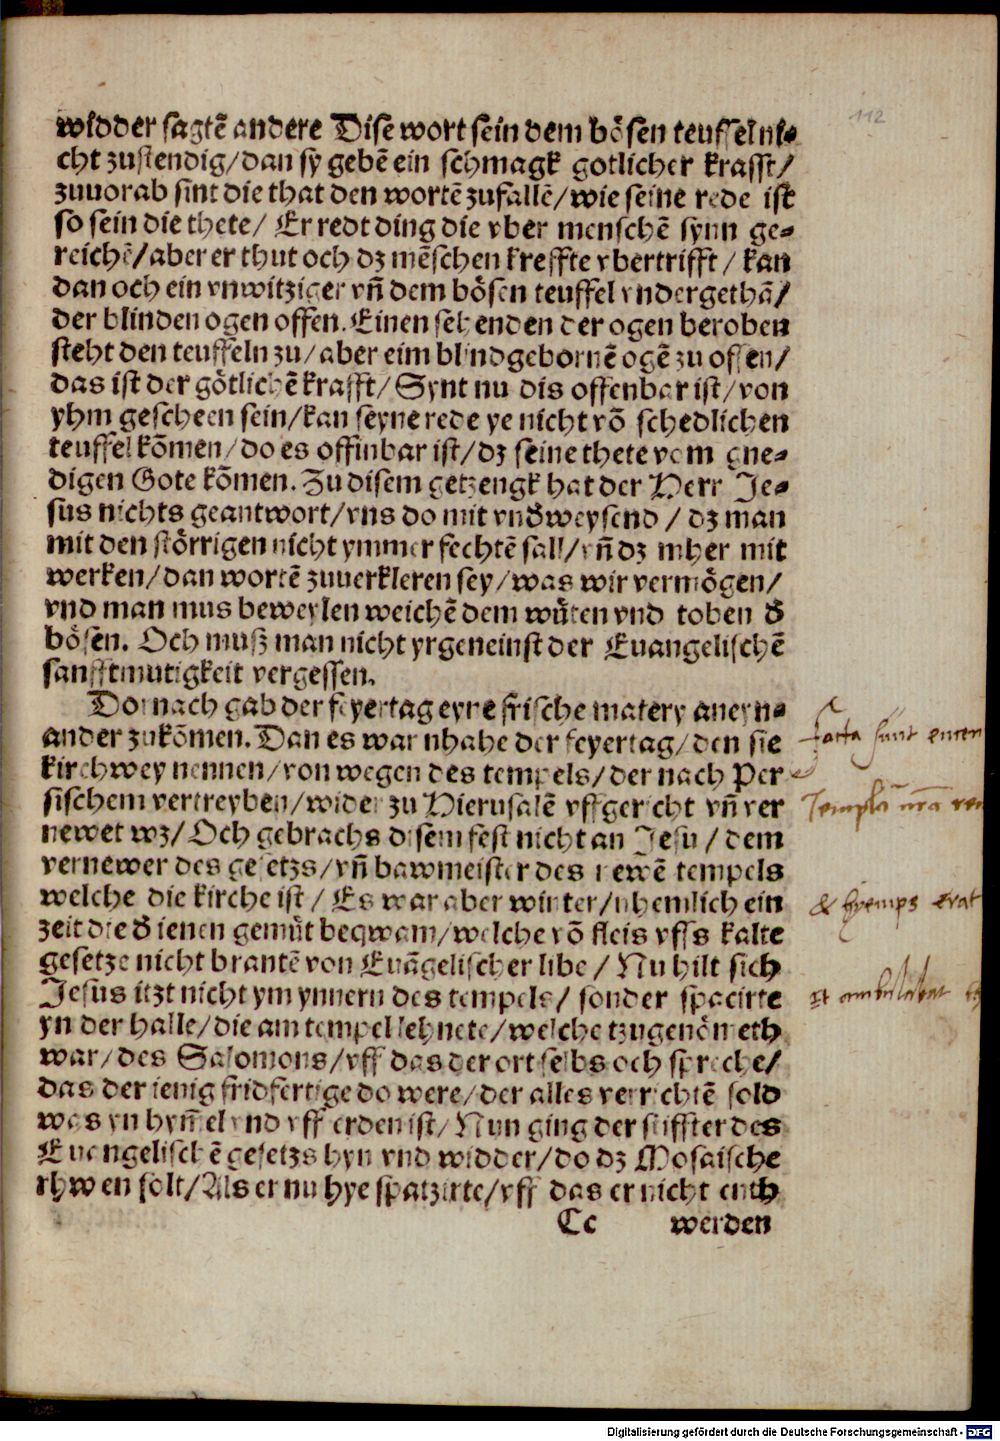 112
widder sagtē andere Dise wort sein dem bösen teuffel ni-
cht zustendig/dan sy gebē ein schmagk gotlicher krafft/
zuuorab sint die that den wortē zufallē/wie seine rede ist
so sein die thete/ Er redt ding die vber menschē synn ge-
reichē/aber er thut och dz mēschen kreffte vbertrifft/ kan
dan och ein vnwitziger vn̄ dem bösen teuffel vndergethā/
der blinden ogen offen. Einen sehenden der ogen beroben
steht den teuffeln zu/aber eim blindgebornē ogē zu offen/
das ist der götlichē krafft/ Synt nu dis offenbar ist/von
yhm gescheen sein/kan seyne rede ye nicht vō schedlichen
teuffel kōmen/do es offinbar ist/dz seine thete vom gne-
digen Gote kōmen. Zu disem getzengk hat der Herr Je-
sus nichts geantwort/vns do mit vnd̄weysend/ dz man
mit den störrigen nicht ymmer fechtē sall/vn̄ dz mher mit
werken/dan wortē zuuerkleren sey/was wir vermögen/
vnd man mus beweylen weichē dem wüten vnd toben d̄
bösen. Och muß man nicht yrgeneinst der Euangelischē
sanfftmutigkeit vergessen.
Dornach gab der feyertag eyne frische matery aneyn-
ander zukōmen. Dan es war nhahe der feyertag/den sie
kirchwey nennen/von wegen des tempels/der nach Per
sischem vertreyben/wider zu Hierusalē vffgericht vn̄ ver
newet wz/Och gebrachs disem fest nicht an Jesu/dem
vernewer des gesetzs/vn̄ bawmeister des newē tempels
welche die kirche ist/ Es war aber winter/nhemlich ein
zeit die d̄ ienen gemüt beqwam/welche vō fleis vffs kalte
gesetze nicht brantē von Euāgelischer libe/ Nu hilt sich
Jesus itzt nicht ym ynnern des tempels/ sonder spacirte
yn der halle/die am tempel lehnete/welche tzugenömeth
war/des Salomons/vff das der ort selbs och spreche/
das der ienig fridfertige do were/der alles verrichtē sold
was yn hym̄el vnd vff erden ist/Nun ging der stiffter des
Euangelischē gesetzs hyn vnd widder/do dz Mosaische
rhwen solt/Als er nu hye spatzirte/vff das er nicht enth
Cc werden
facta sunt encen
& hyemps erat
et ambulabat
Digitalisierung gefördert durch die Deutsche Forschungsgemeinschaft - DFG